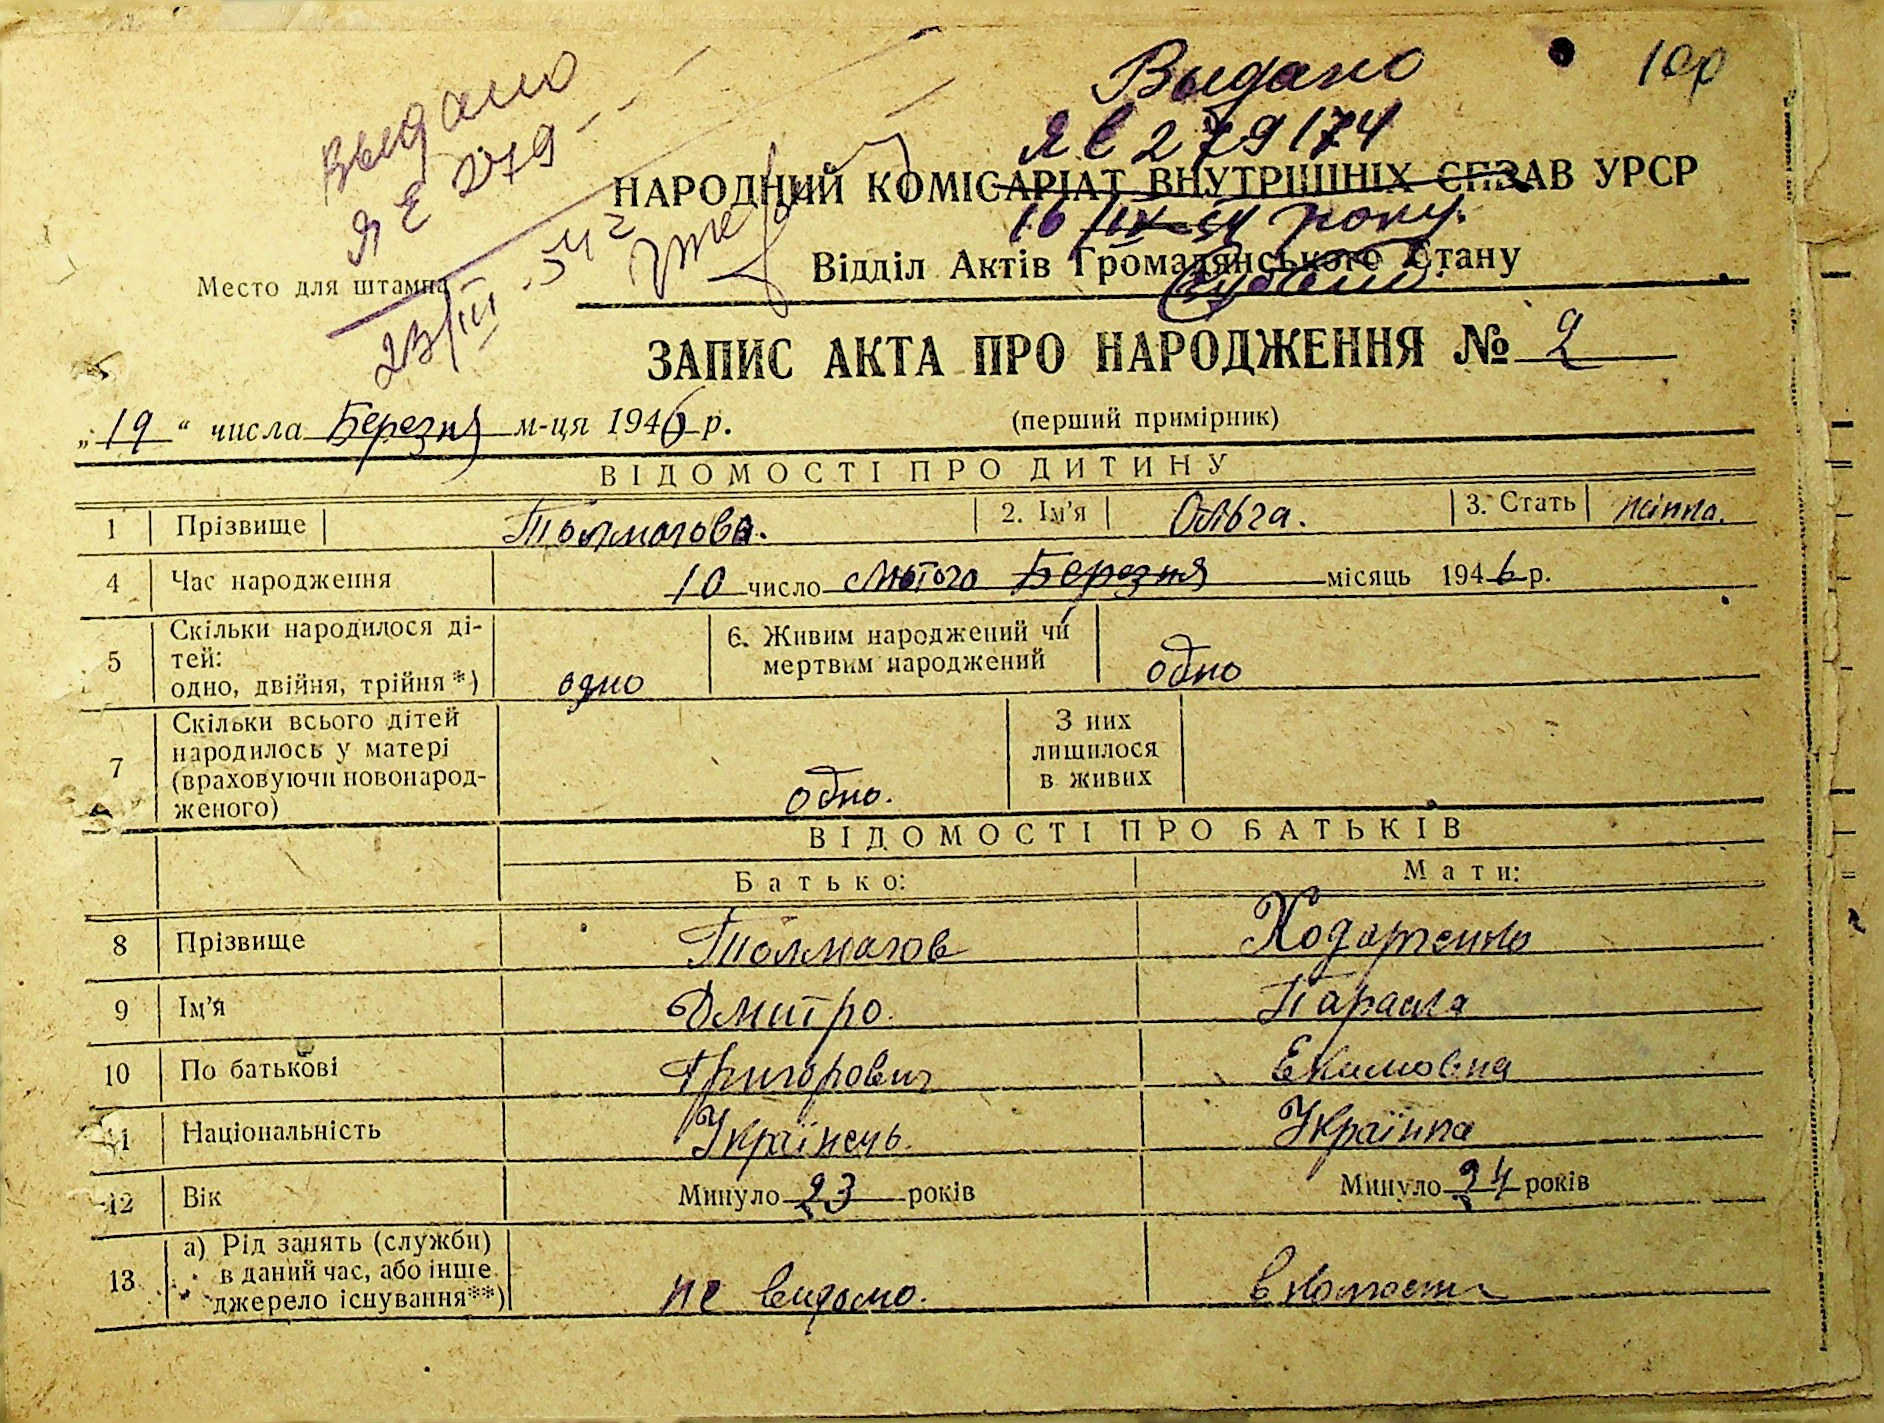 Выдано
ЯЕ 279
23/III-54 г
Выдано
ЯЕ 279174
16/IX-54 року.
100
НАРОДНИЙ КОМІСАРІАТ ВНУТРІШНІХ СПРАВ УРСР
Відділ Актів Громадянського Стану
Место для штампа
ЗАПИС АКТА ПРО НАРОДЖЕННЯ № 2
„19“ числа Березня м-ця 1946 р. (перший примірник)
ВІДОМОСТІ ПРО ДИТИНУ
1 Прізвище Толмачова. 2. Ім'я Ольга. 3. Стать жінна.
4 Час народження 10 число Лютого Березня місяць 1946 р.
5 Скільки народилося ді-
тей:
одно, двійня, трійня *) одно 6. Живим народжений чи
мертвим народжений одно
7 Скільки всього дітей
народилось у матері
(враховуючи новонарод-
женого) одно. З них
лишилося
в живих
ВІДОМОСТІ ПРО БАТЬКІВ
Батько: Мати:
8 Прізвище Толмачов Ходарченко
9 Ім'я Дмитро. Параска
10 По батькові Григорович Екимовна
11 Національність Українець. Українка
12 Вік Минуло 23 років Минуло 24 років
13 а) Рід занять (служби)
в даний час, або інше
джерело існування**) не видомо. в